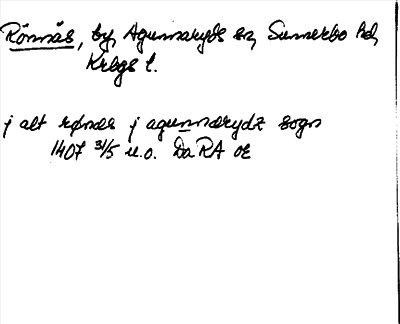 Rönnäs, by, Agunnaryds sn, Sunnerbo hd,
Krbgs l.
j alt rønæs j agunnærydz sogn
1407 31/5 u.o. Da RA or